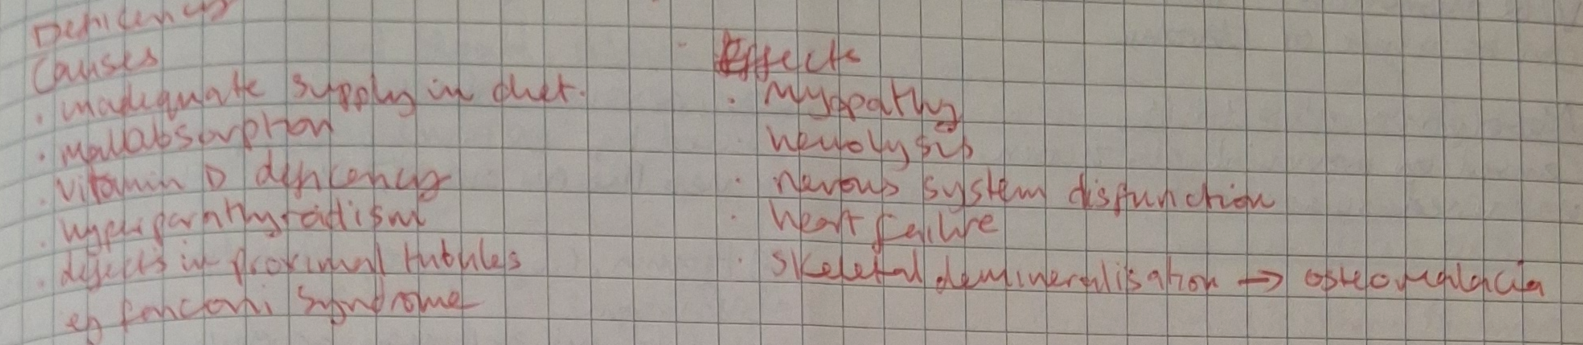 Deficiency
Causes
. inadequate supply in diet.
. mallabsorption
. vitamin D deficency
. hyperparathyroidism
. defects in proximal tubules
eg fanconi syndrome
Effects
. Myopathy
hemolysis
. nervous system disfunction
. heart failure
. skeletal demineralisation → osteomalacia